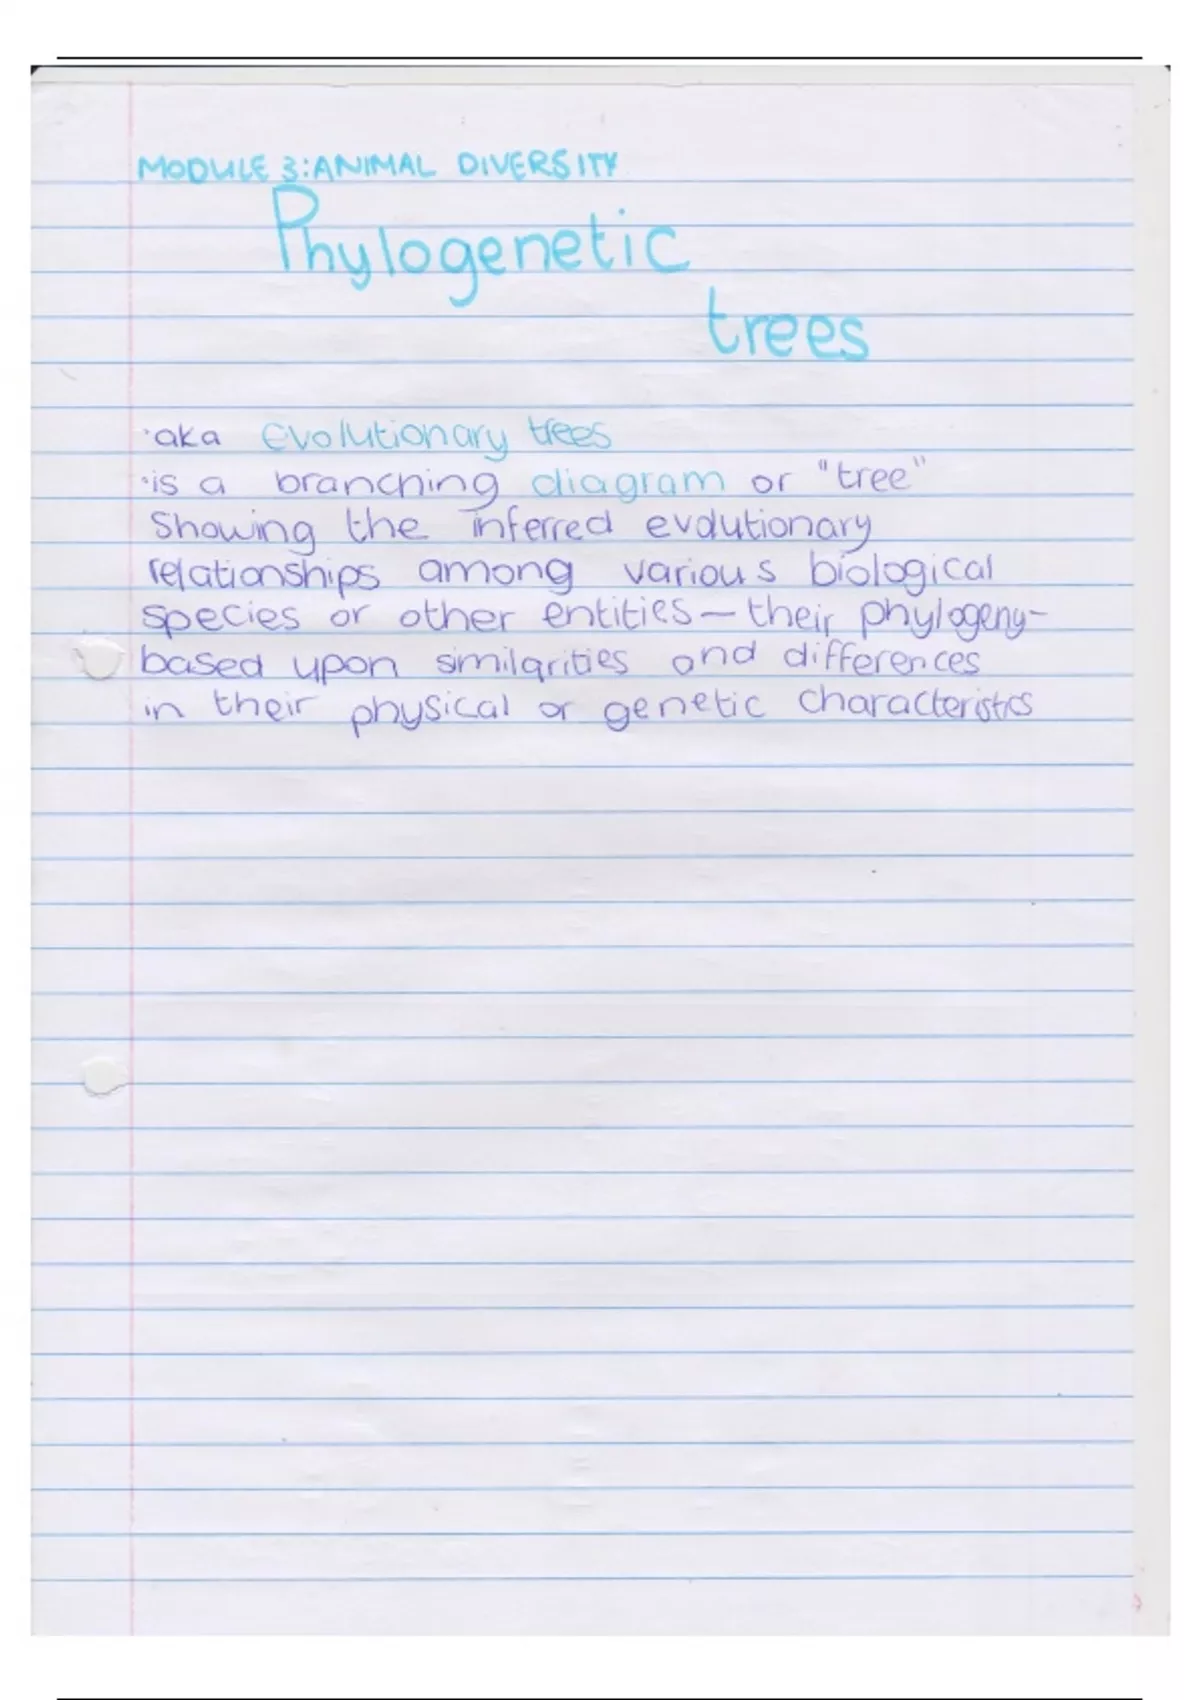 MODULE 3: ANIMAL DIVERSITY
Phylogenetic
trees
·aka evolutionary trees
·is a branching diagram or "tree"
Showing the inferred evolutionary
relationships among various biological
species or other entities — their phylogeny-
based upon similarities and differences
in their physical or genetic characteristics